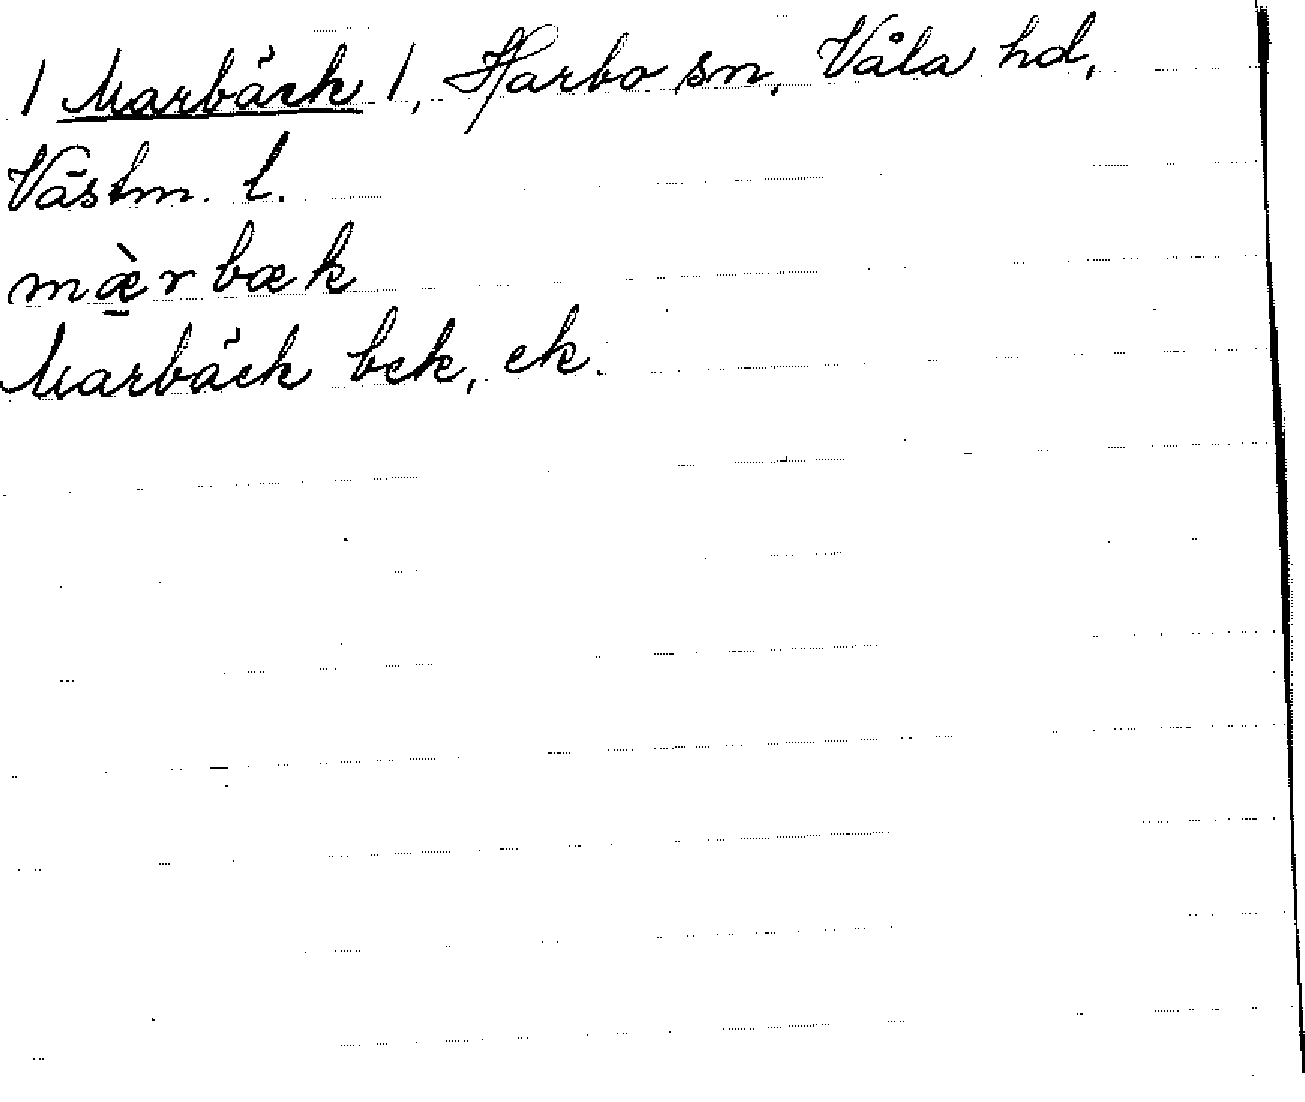 / Marbäck /, Harbo sn, Våla hd,
Västm. l.
mæ̠̀rbæk
Marbäck bek, ek.